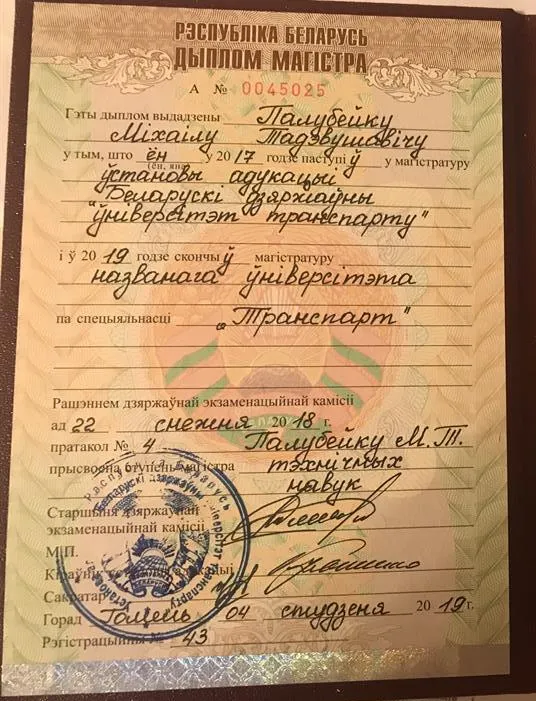 РЭСПУБЛІКА БЕЛАРУСЬ
ДЫПЛОМ МАГІСТРА
А № 0045025
Гэты дыплом выдадзены Палубейку
Міхаілу Тадэвушавічу
у тым, што ён у 2017 годзе паступіў у магістратуру
(ён, яна)
ўстановы адукацыі
Беларускі дзяржаўны
"ўніверсітэт транспарту"
і ў 2019 годзе скончыў магістратуру
названага ўніверсітэта
па спецыяльнасці "Транспарт"
Рашэннем дзяржаўнай экзаменацыйнай камісіі
ад 22 снежня 2018 г.
пратакол № 4 Палубейку М.Т.
прысвоена ступень магістра тэхнічмых
навук
Старшыня дзяржаўнай
экзаменацыйнай камісіі
М.П.
Кіраўнік
Сакратар
Горад Гомель 04 студзеня 2019 г.
Рэгістрацыйны № 43
Рэспубліка Беларусь
Беларускі дзяржаўны ўніверсітэт транспарту